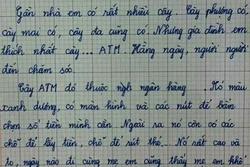 Gần nhà em có rất nhiều cây. Cây phượng có,
cây mai có, cây đa cũng có. Nhưng gia đình em
thích nhất cây... ATM. Hằng ngày, người người
đến chăm sóc.
Cây ATM đó thuộc ngân hàng ... Nó màu
xanh dương, có màn hình và các nút để bấm
chọn số tiền mình cần. Ngoài ra nó còn có các
chỗ để lấy tiền, chỗ để rút thẻ. Nó rất cao và
to, ngày nào đi cùng mẹ em cũng thấy mẹ em nhờ